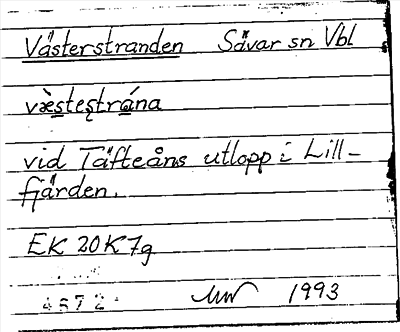 Västerstranden Sävar sn Vbl
væ̀stestrána
vid Täfteåns utlopp i Lill-
fjärden.
EK 20K7g
1993